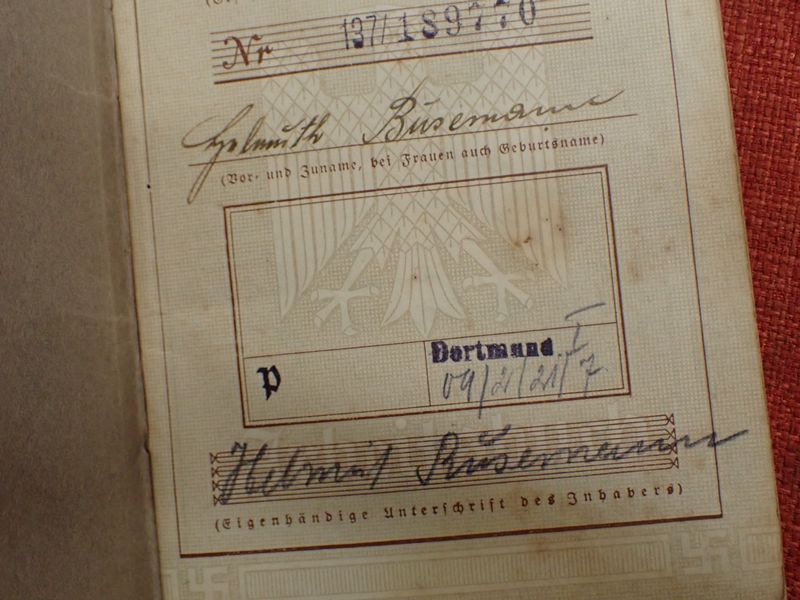 Nr 137/189770
Helmuth Büsemann
(Vor- und Zuname, bei Frauen auch Geburtsname)
Dortmund I
P 09/2/21/7
Helmut Büsemann
(Eigenhändige Unterschrift des Inhabers)